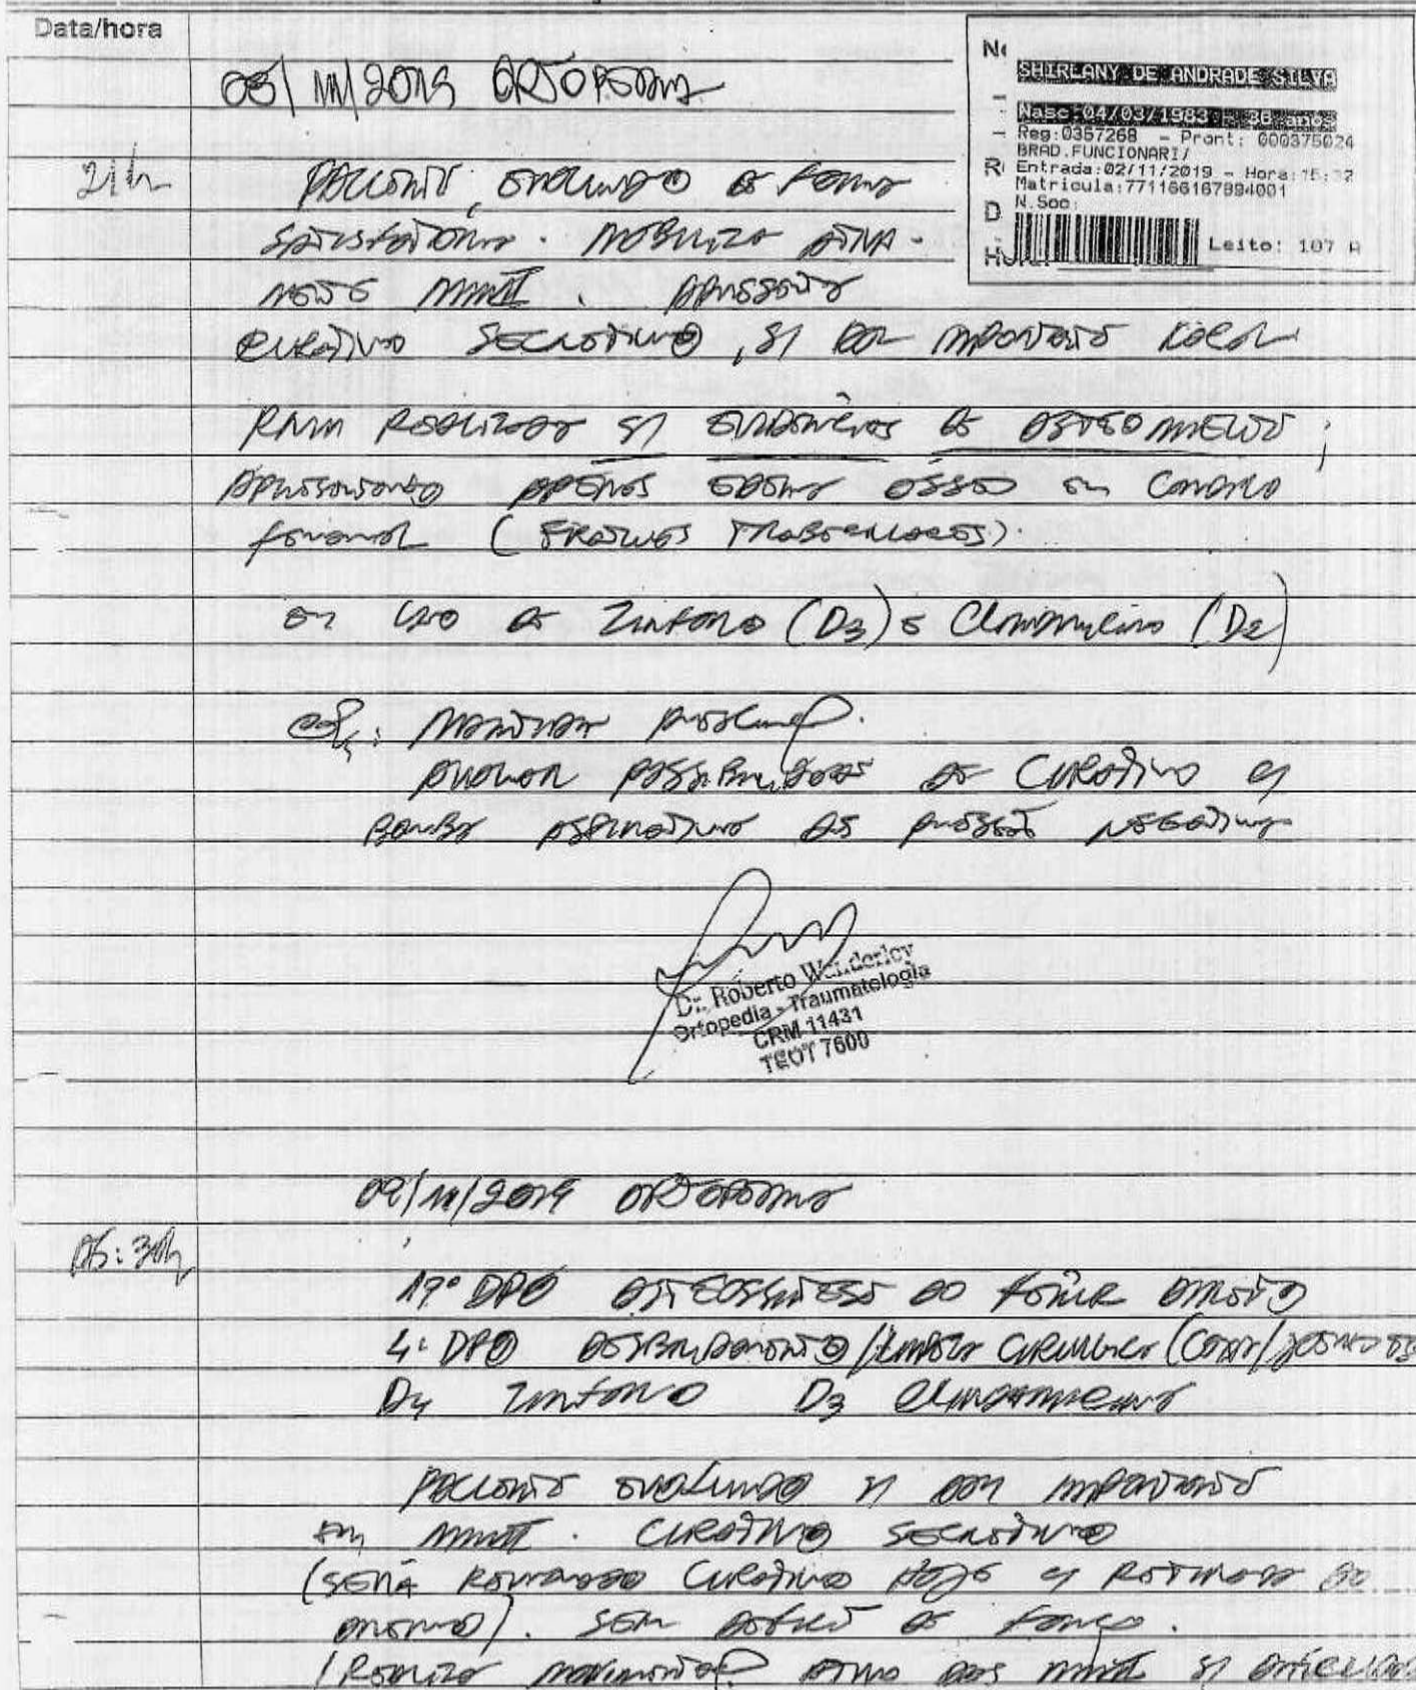 Data/hora
SHIRLANY DE ANDRADE SILVA
Nasc:04/03/1983 - 36 anos
Reg:0357268 - Pront: 000375024
BRAD.FUNCIONARI/
Entrada:02/11/2019 - Hora:15:37
Matricula:771166167894001
N.Soc:
Leito: 107 A
/11/2019 ORTOPEDIA
21h
PACIENTE, EVOLUINDO DE FORMA
SATISFATÓRIA. MOBILIZA ATIVA-
MENTE MMII. APRESENTA
CURATIVO SECRETIVO, S/ DOR IMPORTANTE LOCAL
RNM REALIZADA S/ EVIDÊNCIAS DE OSTEOMIELITE;
APRESENTANDO APENAS EDEMA ÓSSEO EM CONDILO
FEMORAL (FRATURAS TRABECULARES).
EM USO DE ZINFORO (D3) E CLINDAMICINA (D2)
MANTER
AVALIAR POSSIBILIDADE DE CURATIVO C/
BOMBA ASPIRATIVA DE PRESSÃO NEGATIVA
Dr. Roberto Wanderley
Ortopedia - Traumatologia
CRM 11431
TEOT 7600
/11/2019 ORTOPEDIA
:30h
DPO OSTEOSSÍNTESE DO FÊMUR DIREITO
4º DPO DESBRIDAMENTO/LIMPEZA CIRÚRGICA (COXA/
D4 ZINFORO D3 CLINDAMICINA
PACIENTE EVOLUINDO S/ DOR IMPORTANTE
EM MMII. CURATIVO SECRETIVO
(SERÁ CURATIVO HOJE C/ RETIRADA DO
DRENO). SEM DE
REALIZA ATIVO DOS MMII S/